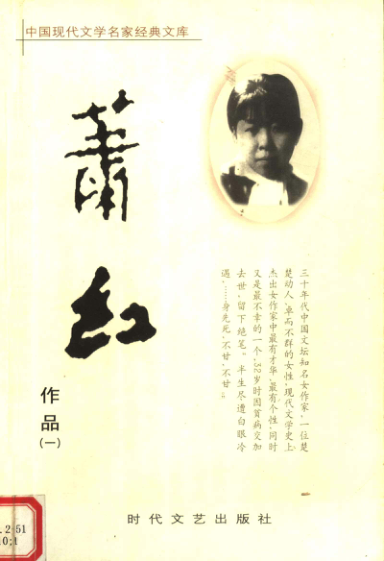 中国现代文学名家经典文库
萧红
作品
(一)
三十年代中国文坛知名女作家,一位楚
楚动人、卓而不群的女性,现代文学史上
杰出女作家中最有才华、最有个性,同时
又是最不幸的一个,32岁时因贫病交加
去世,留下绝笔“半生尽遭白眼冷
遇,……身先死,不甘,不甘。”
时代文艺出版社
.2 51
0:1